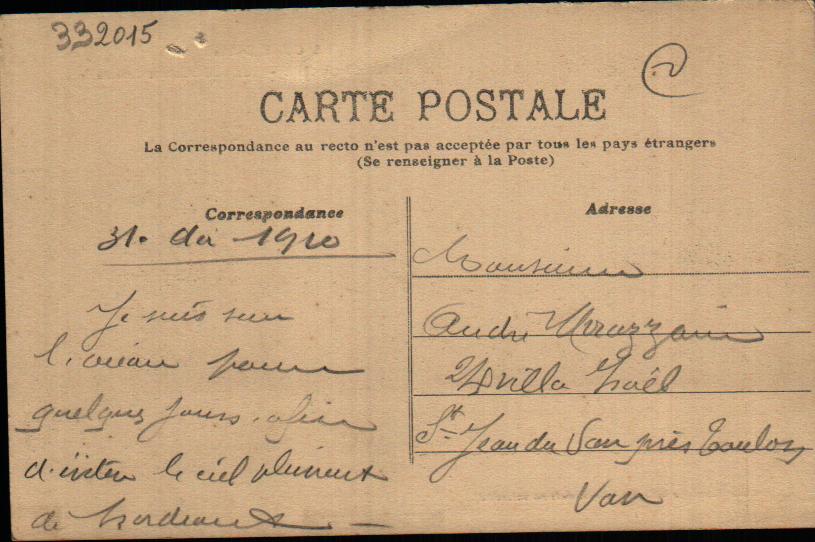 332015
CARTE POSTALE
La Correspondance au recto n'est pas acceptée par tous les pays étrangers
(Se renseigner à la Poste)
Correspondance
31. 1910
Je suis sur
l'océan pour
quelques jours. afin
d'éviter le ciel pluvieux
de Bordeaux —
Adresse
Monsieur
André
Villa
St Jean du Var près Toulon
Var